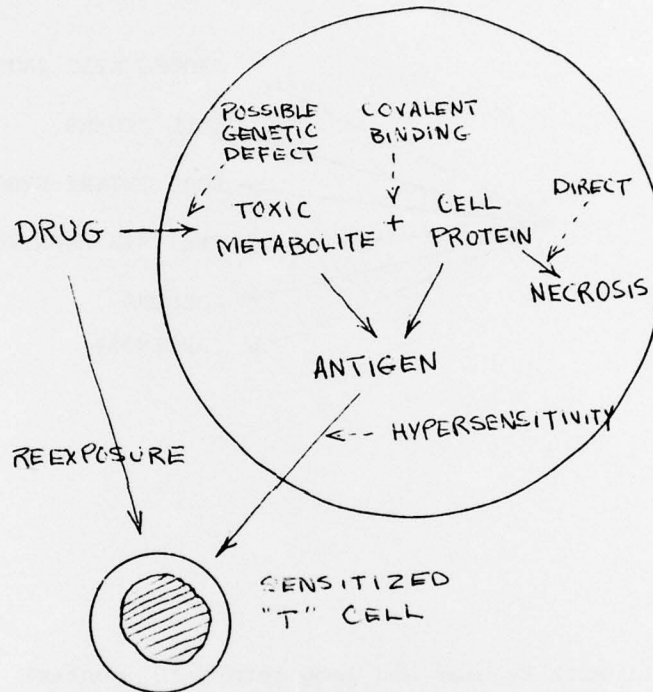 POSSIBLE
GENETIC
DEFECT
COVALENT
BINDING
DIRECT
DRUG
TOXIC
METABOLITE
+
CELL
PROTEIN
NECROSIS
ANTIGEN
HYPERSENSITIVITY
REEXPOSURE
SENSITIZED
"T" CELL